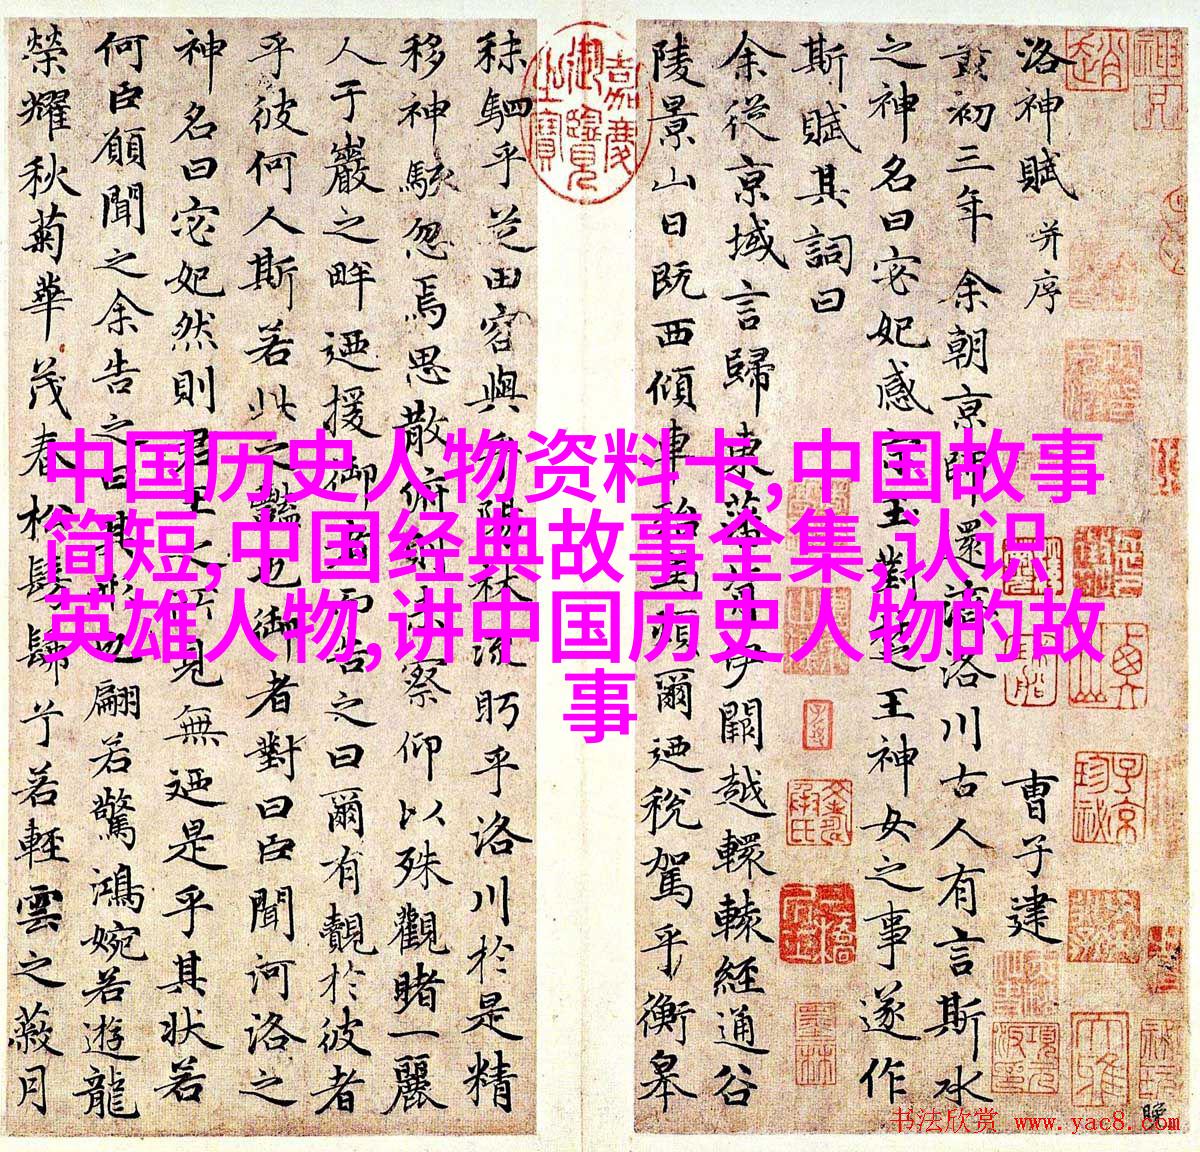 洛神賦 并序 曹子建
黃初三年余朝京師還濟洛川古人有言斯水
之神名曰宓妃感宋玉對楚王神女之事遂作
斯賦其詞曰
余從京域言歸東藩背伊闕越轘轅經通谷
陵景山日既西傾車殆馬煩爾迺稅駕乎衡皋
嘉慶御覽之寶
秣駟乎芝田容與乎陽林流眄乎洛川於是精
移神駭忽焉思散俯則未察仰以殊觀睹一麗
人于巖之畔迺援御者而告之曰爾有覿於彼者
乎彼何人斯若此之豔也御者對曰臣聞河洛之
神名曰宓妃然則君王之所見無迺是乎其狀若
何臣願聞之余告之曰其形也翩若驚鴻婉若遊龍
榮耀秋菊華茂春松髣髴兮若輕雲之蔽月
中国历史人物资料卡,中国故事
简短,中国经典故事全集,认识
英雄人物,讲中国历史人物的故
事
书法欣赏 www.yac8.com